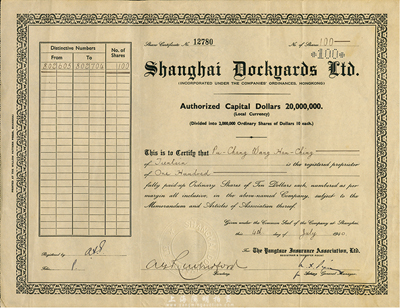 Share Certificate No. 12780
No. of Shares 100
*100*
Distinctive Numbers
No. of Shares
From
To
100
Shanghai Dockyards Ltd.
(INCORPORATED UNDER THE COMPANIES' ORDINANCES, HONGKONG)
Authorized Capital Dollars 20,000,000.
(Local Currency)
(Divided into 2,000,000 Ordinary Shares of Dollars 10 each.)
This is to Certify that
of Tientsin is the registered proprietor
of One Hundred
fully paid-up Ordinary Shares of Ten Dollars each, numbered as per margin all inclusive, in the above-named Company, subject to the
Memorandum and Articles of Association thereof.
Given under the Common Seal of the Company at Shanghai
this day of July 1940
The Yangtsze Insurance Association, Ltd.
Registered by